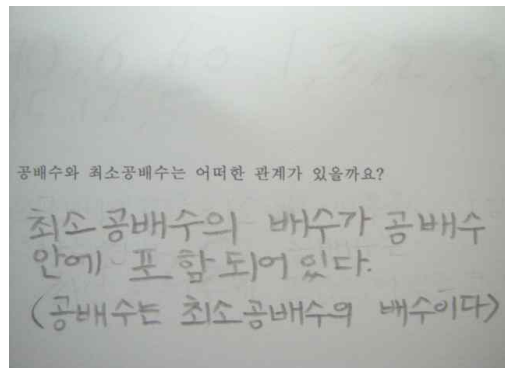 공배수와 최소공배수는 어떠한 관계가 있을까요?
최소공배수의 배수가 공배수
안에 포함되어있다.
(공배수는 최소공배수의 배수이다)